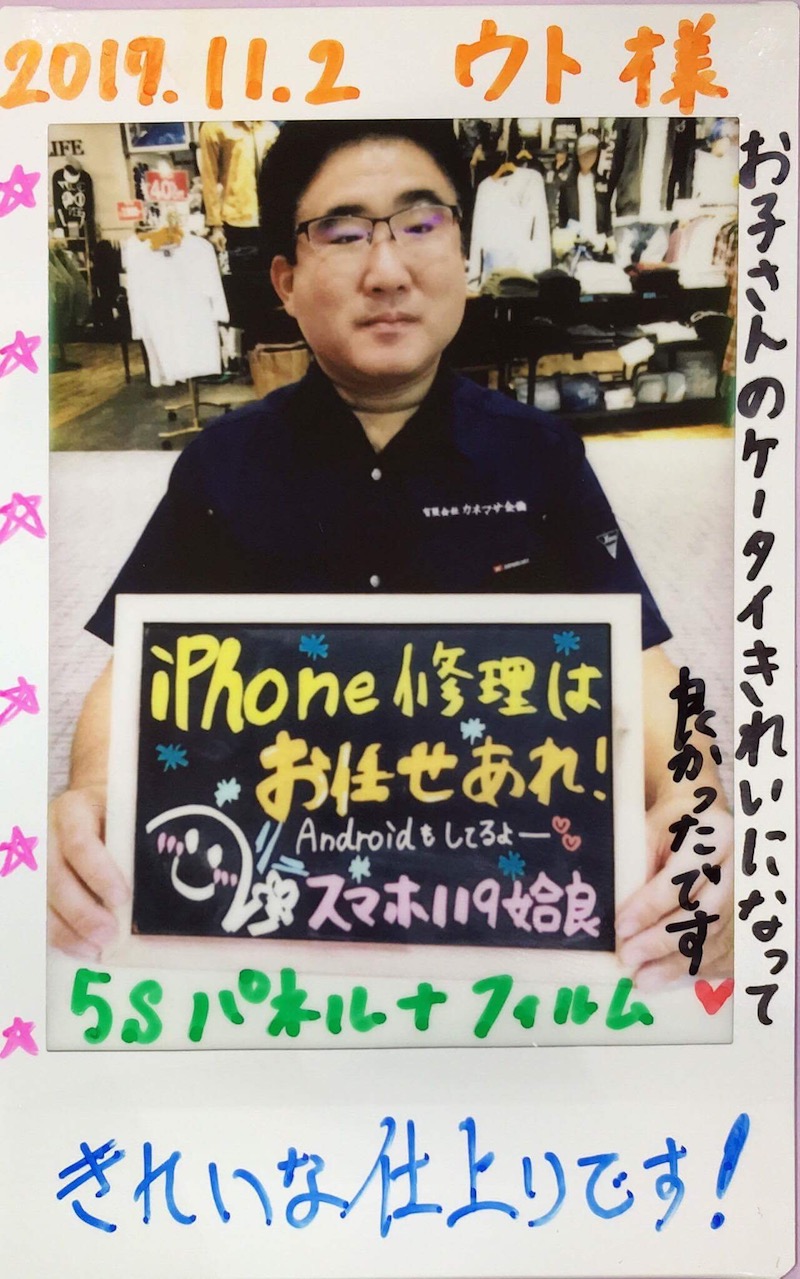 2019.11.2 ウト様
お子さんのケータイきれいになって
良かったです
LIFE
40%
有限会社 カネマサ金機
iPhone修理は
お任せあれ!
Androidもしてるよー
スマホ119姶良
5S パネル+フィルム
きれいな仕上りです!